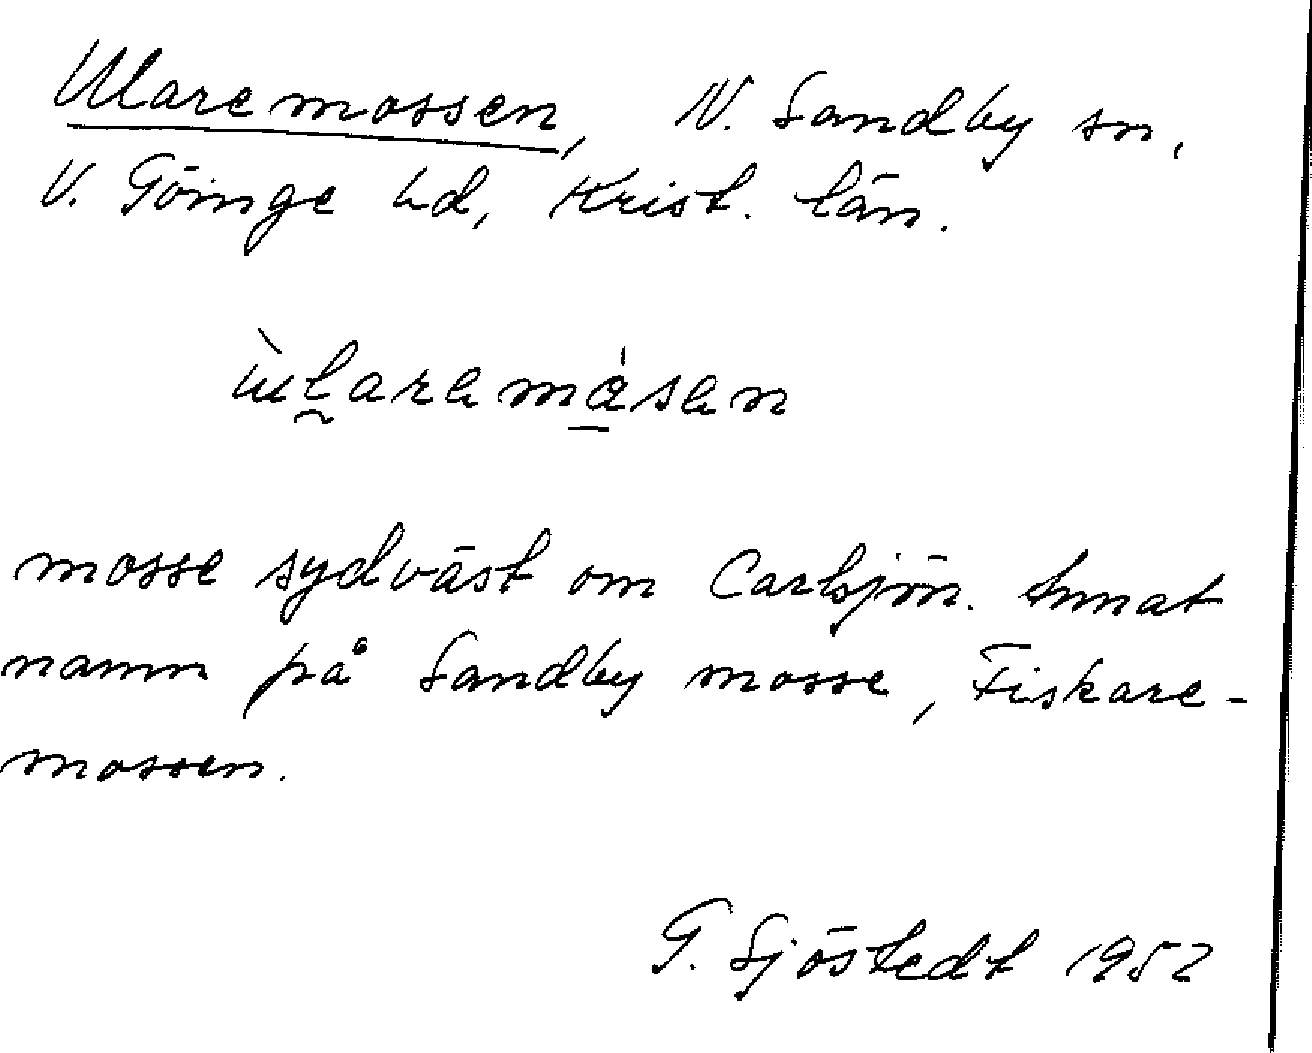 Ularemossen, N. Sandby sn,
V. Göinge hd, Krist. län.
mosse sydväst om Carlsjön. Annat
namn på Sandby mosse, Fiskare-
mossen.
G. Sjöstedt 1952